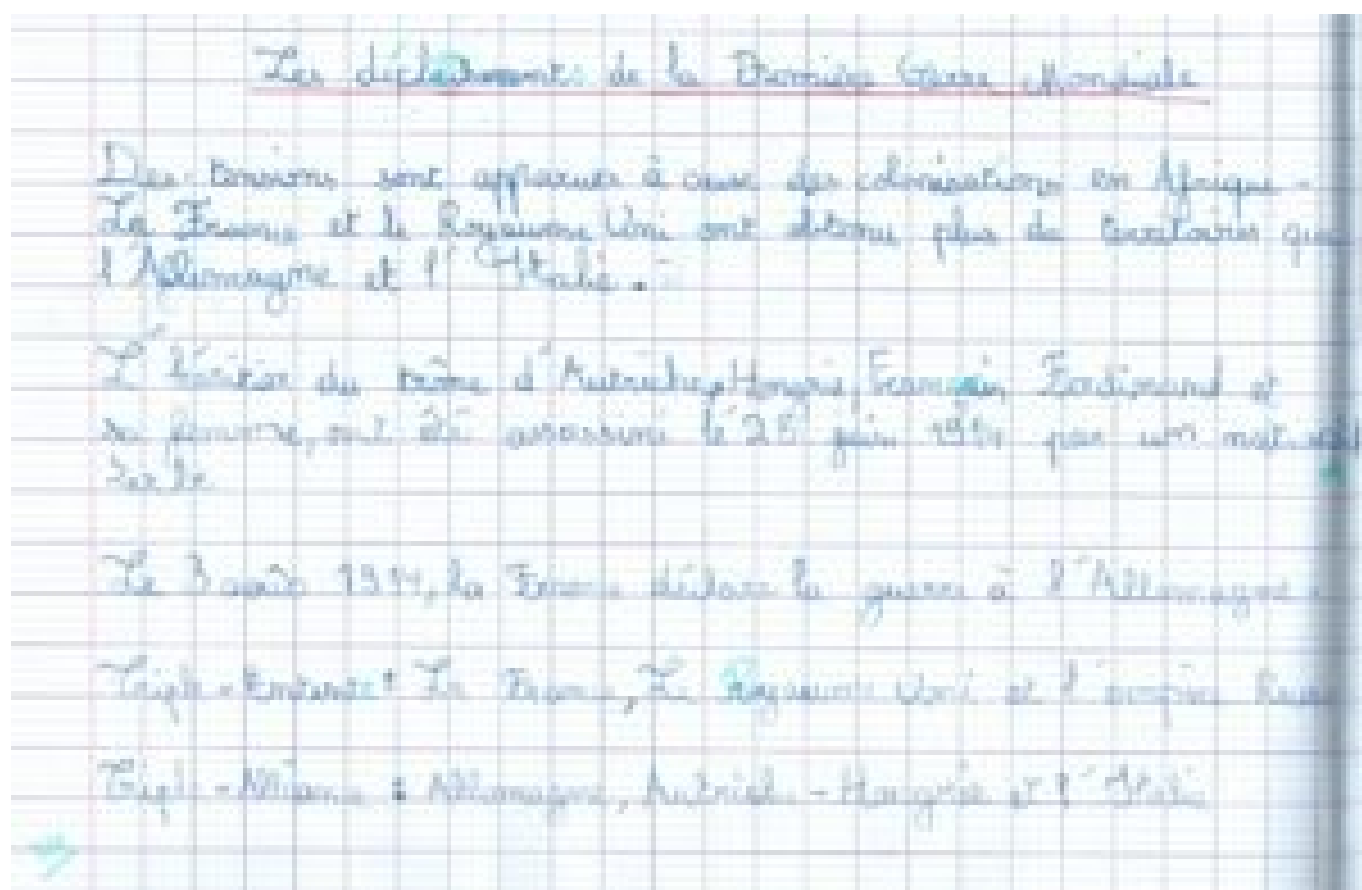 Les déclenchements de la Première Guerre Mondiale
Des tensions sont apparues à cause des colonisations en Afrique.
La France et le Royaume Uni ont obtenu plus de territoires que
l'Allemagne et l'Italie.
L'héritier du trône d'Autriche-Hongrie, François Ferdinand et
sa femme, ont été assassiné le 28 juin 1914 par un
Le 3 août 1914, la France déclare la guerre à l'Allemagne.
Triple-Entente: La France, Le Royaume Uni et l'empire Russe
Triple-Alliance : Allemagne, Autriche-Hongrie et l'Italie